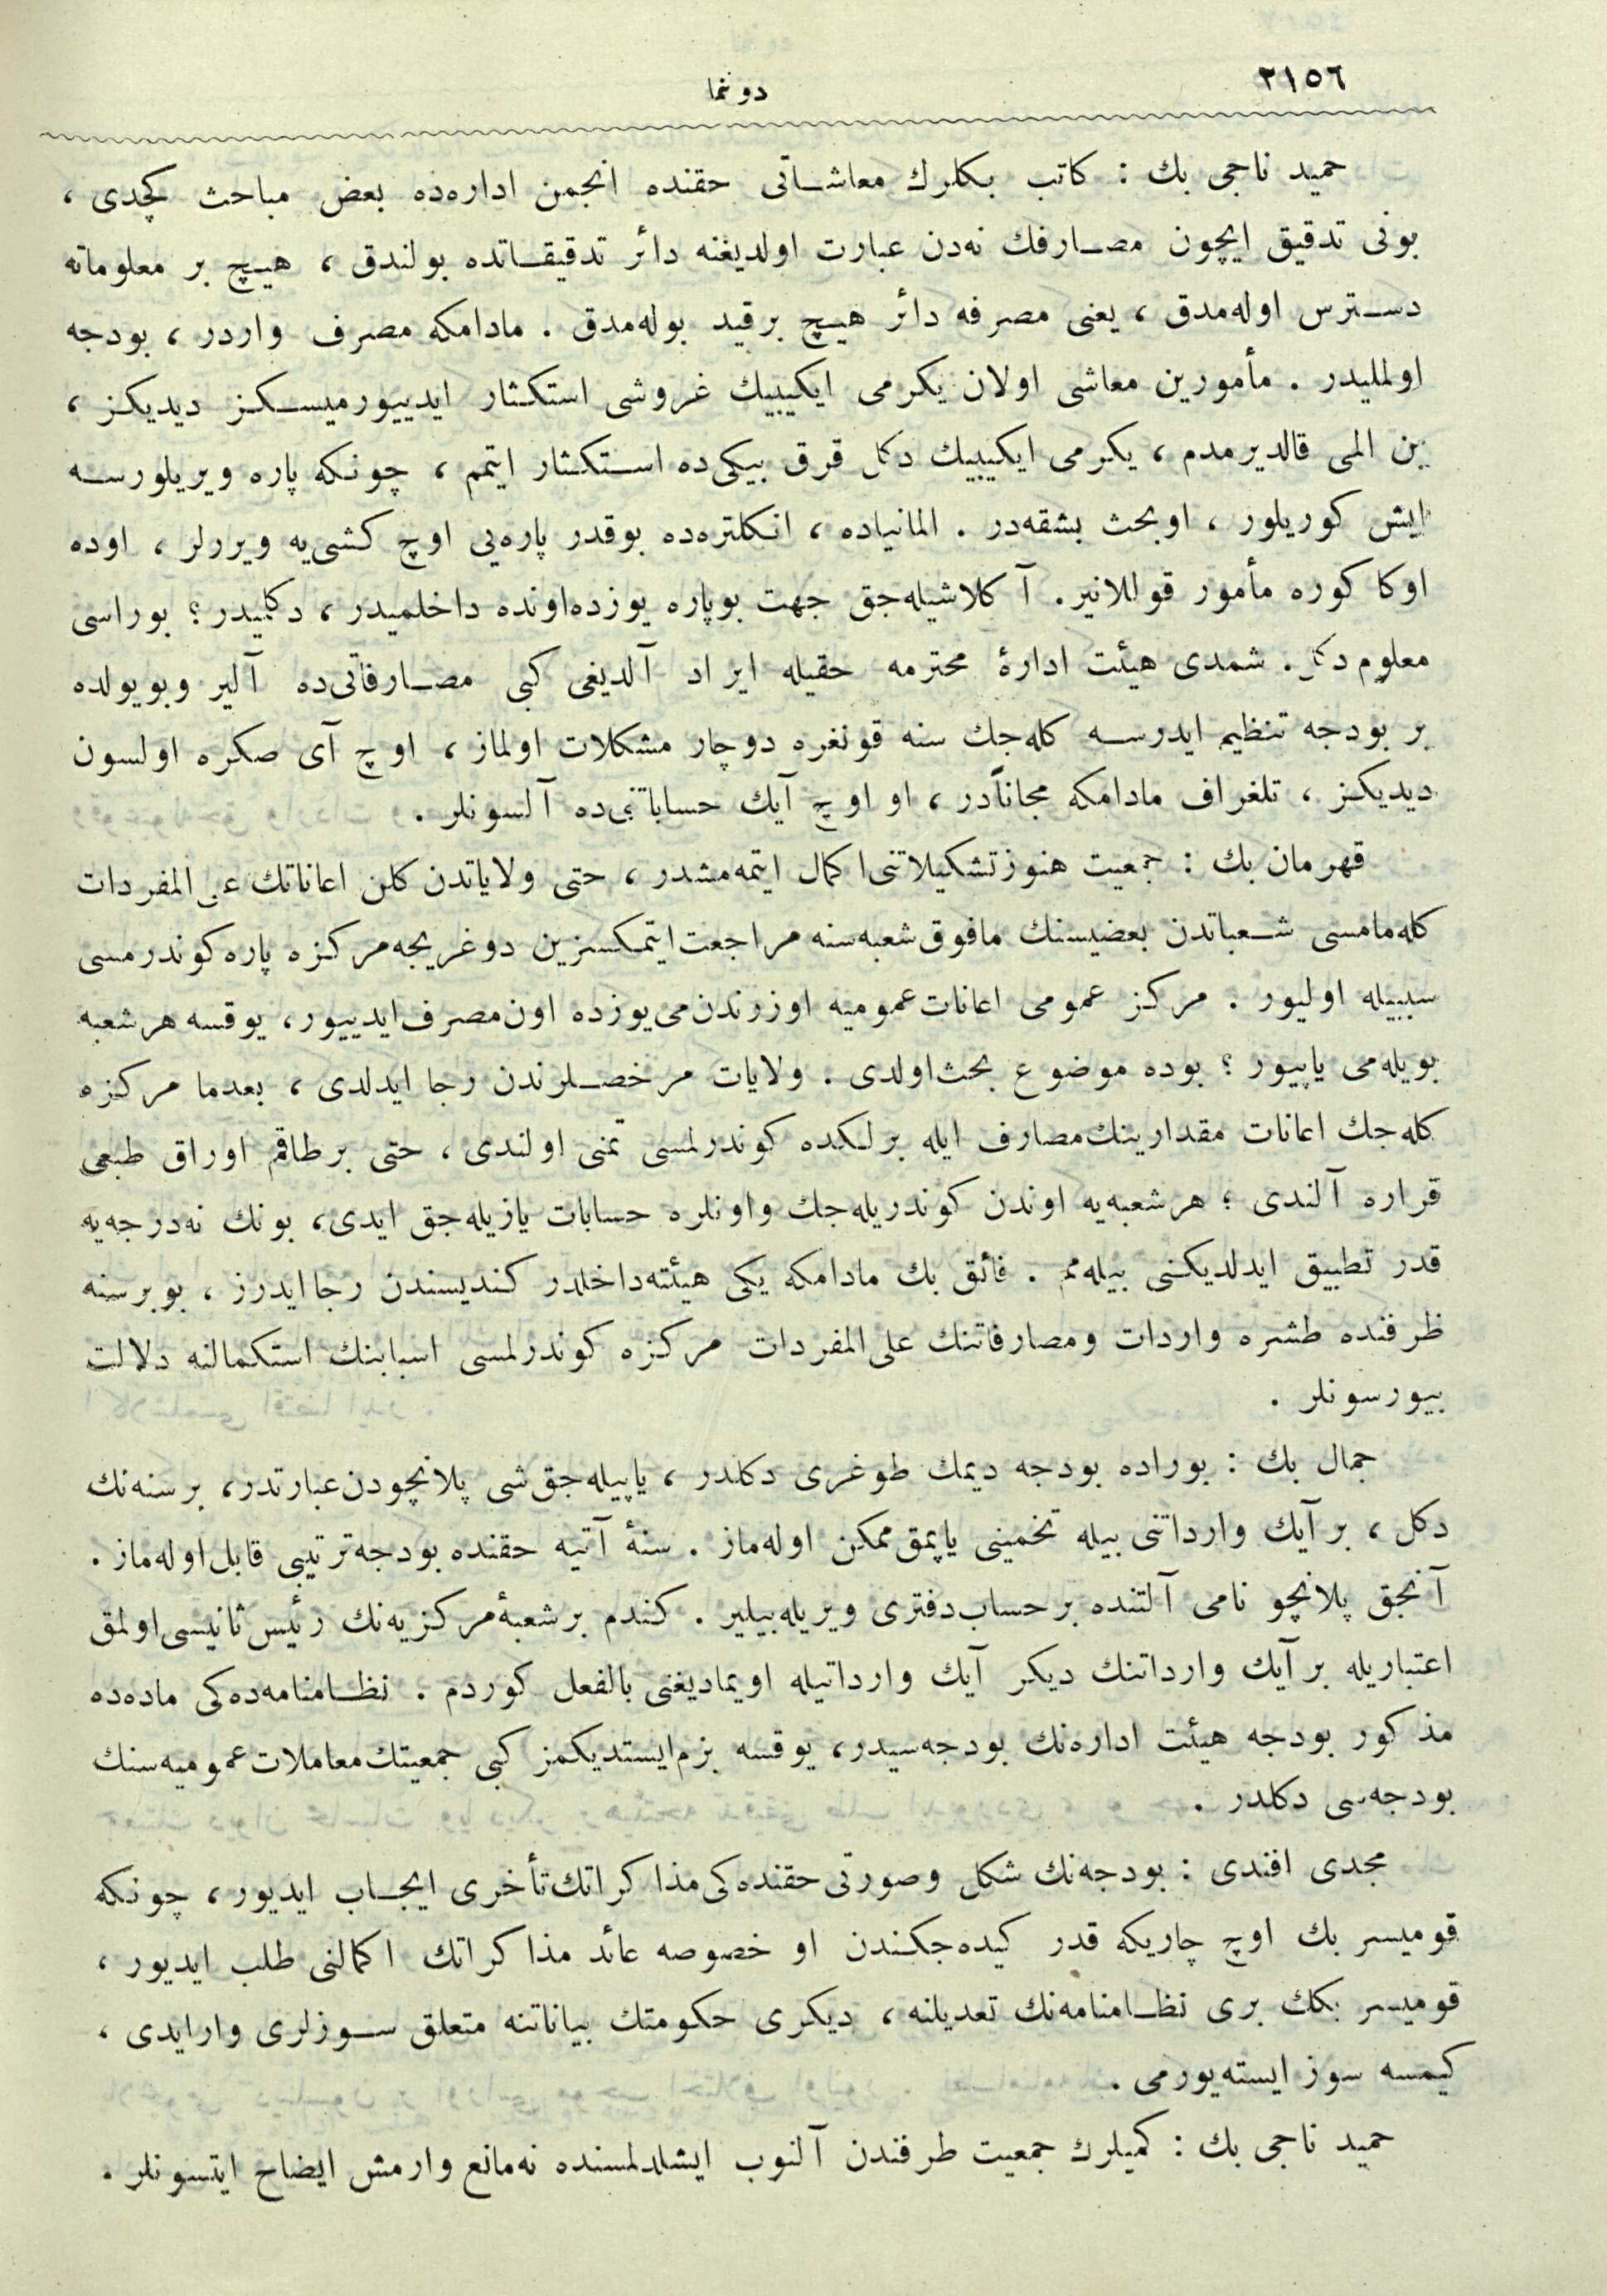 ٢١٥٦
دوننما
حميد ناجى بك : كاتب بكلرك معاشاتى حقنده انجمن اداره‌ده بعض مباحث كچدى ،
بونى تدقيق ايچون مصارفك نه‌دن عبارت اولديغنه دائر تدقيقاتده بولندق ، هيچ بر معلوماته
دسترس اوله‌مدق ، يعنى مصرفه دائر هيچ برقيد بوله‌مدق . مادامكه مصرف واردر ، بودجه
اولمليدر . مأمورين معاشى اولان يكرمى ايكيبيك غروشى استكثار ايدييورميسكز ديديكز ،
بن المى قالديرمدم ، يكرمى ايكيبيك دكل قرق بيكى‌ده استكثار ايتمم ، چونكه پاره ويريلورسه
ايش كوريلور ، اوبحث بشقه‌در . المانياده ، انكلتره‌ده بوقدر پاره‌يى اوچ كشى‌يه ويررلر ، اوده
اوكا كوره مأمور قوللانير. آكلاشيله‌جق جهت بوپاره يوزده‌اونده داخلميدر ، دكلميدر ؟ بوراسى
معلوم دكل . شمدى هيئت ادارهٔ محترمه حقيله ايراد آلديغى كبى مصارفاتى‌ده آلير وبويولده
بر بودجه تنظيم ايدرسه كله‌جك سنه قونغره دوچار مشكلات اولماز ، اوچ آى صكره اولسون
ديديكز ، تلغراف مادامكه مجاناًدر ، او اوچ آيك حساباتنى‌ده آلسونلر .
قهرمان بك : جمعيت هنوزتشكيلاتنى‌اكمال ايتمه‌مشدر ، حتى ولاياتدن كلن اعاناتك على المفردات
كله‌مامسى شعباتدن بعضيسنك مافوق شعبه‌سنه مراجعت‌ايتمكسزين دوغريجه‌مركزه پاره كوندرمسى
سببيله اوليور . مركز عمومى اعانات عموميه اوزرندن‌مى‌يوزده اون‌مصرف‌ايدييور، يوقسه هرشعبه
بويله‌مى ياپييور ؟ بوده موضوع بحث‌اولدى . ولايات مرخصلرندن رجا ايدلدى ، بعدما مركزه
كله‌جك اعانات مقدارينك‌مصارف ايله برلكده كوندرلمسى تمنى اولندى ، حتى برطاقم اوراق طبعى
قراره آلندى ؛ هرشعبه‌يه اوندن كوندريله‌جك واونلره حسابات يازيله‌جق ايدى، بونك نه‌درجه‌يه
قدر تطبيق ايدلديكنى بيله‌مم . فائق بك مادامكه يكى هيئته‌داخلدر كنديسندن رجاايدرز ، بوبرسنه
ظرفنده طشره واردات ومصارفاتنك على‌المفردات مركزه كوندرلمسى اسبابنك استكمالنه دلالت
بيورسونلر .
جمال بك : بوراده بودجه ديمك طوغرى دكلدر ، ياپيله‌جق‌شى پلانچودن‌عبارتدر، برسنه‌نك
دكل ، بر آيك وارداتنى بيله تخمينى ياپمق‌ممكن اوله‌ماز . سنهٔ آتيه حقنده بودجه‌ترتيبى قابل‌اوله‌ماز .
آنجق پلانچو نامى آلتنده برحساب‌دفترى ويريله‌بيلير . كندم برشعبهٔ‌مركزيه‌نك رئيس‌ثانيسى‌اولمق
اعتباريله بر آيك وارداتنك ديكر آيك وارداتيله اويماديغنى بالفعل كوردم . نظامنامه‌ده‌كى ماده‌ده
مذكور بودجه هيئت اداره‌نك بودجه‌سيدر، يوقسه بزم‌ايستديكمز كبى جمعيتك‌معاملات‌عموميه‌سنك
بودجه‌سى دكلدر .
مجدى افندى : بودجه‌نك شكل وصورتى‌حقنده‌كى‌مذاكراتك‌تأخرى ايجاب ايديور، چونكه
قوميسر بك اوچ چاريكه قدر كيده‌جكندن او خصوصه عائد مذاكراتك اكمالنى طلب ايديور ،
قوميسر بكك برى نظامنامه‌نك تعديلنه ، ديكرى حكومتك بياناتنه متعلق سوزلرى وارايدى ،
كيمسه سوز ايسته‌يورمى .
حميد ناجى بك : كميلرك جمعيت طرفندن آلنوب ايشلدلمسنده نه‌مانع وارمش ايضاح ايتسونلر .